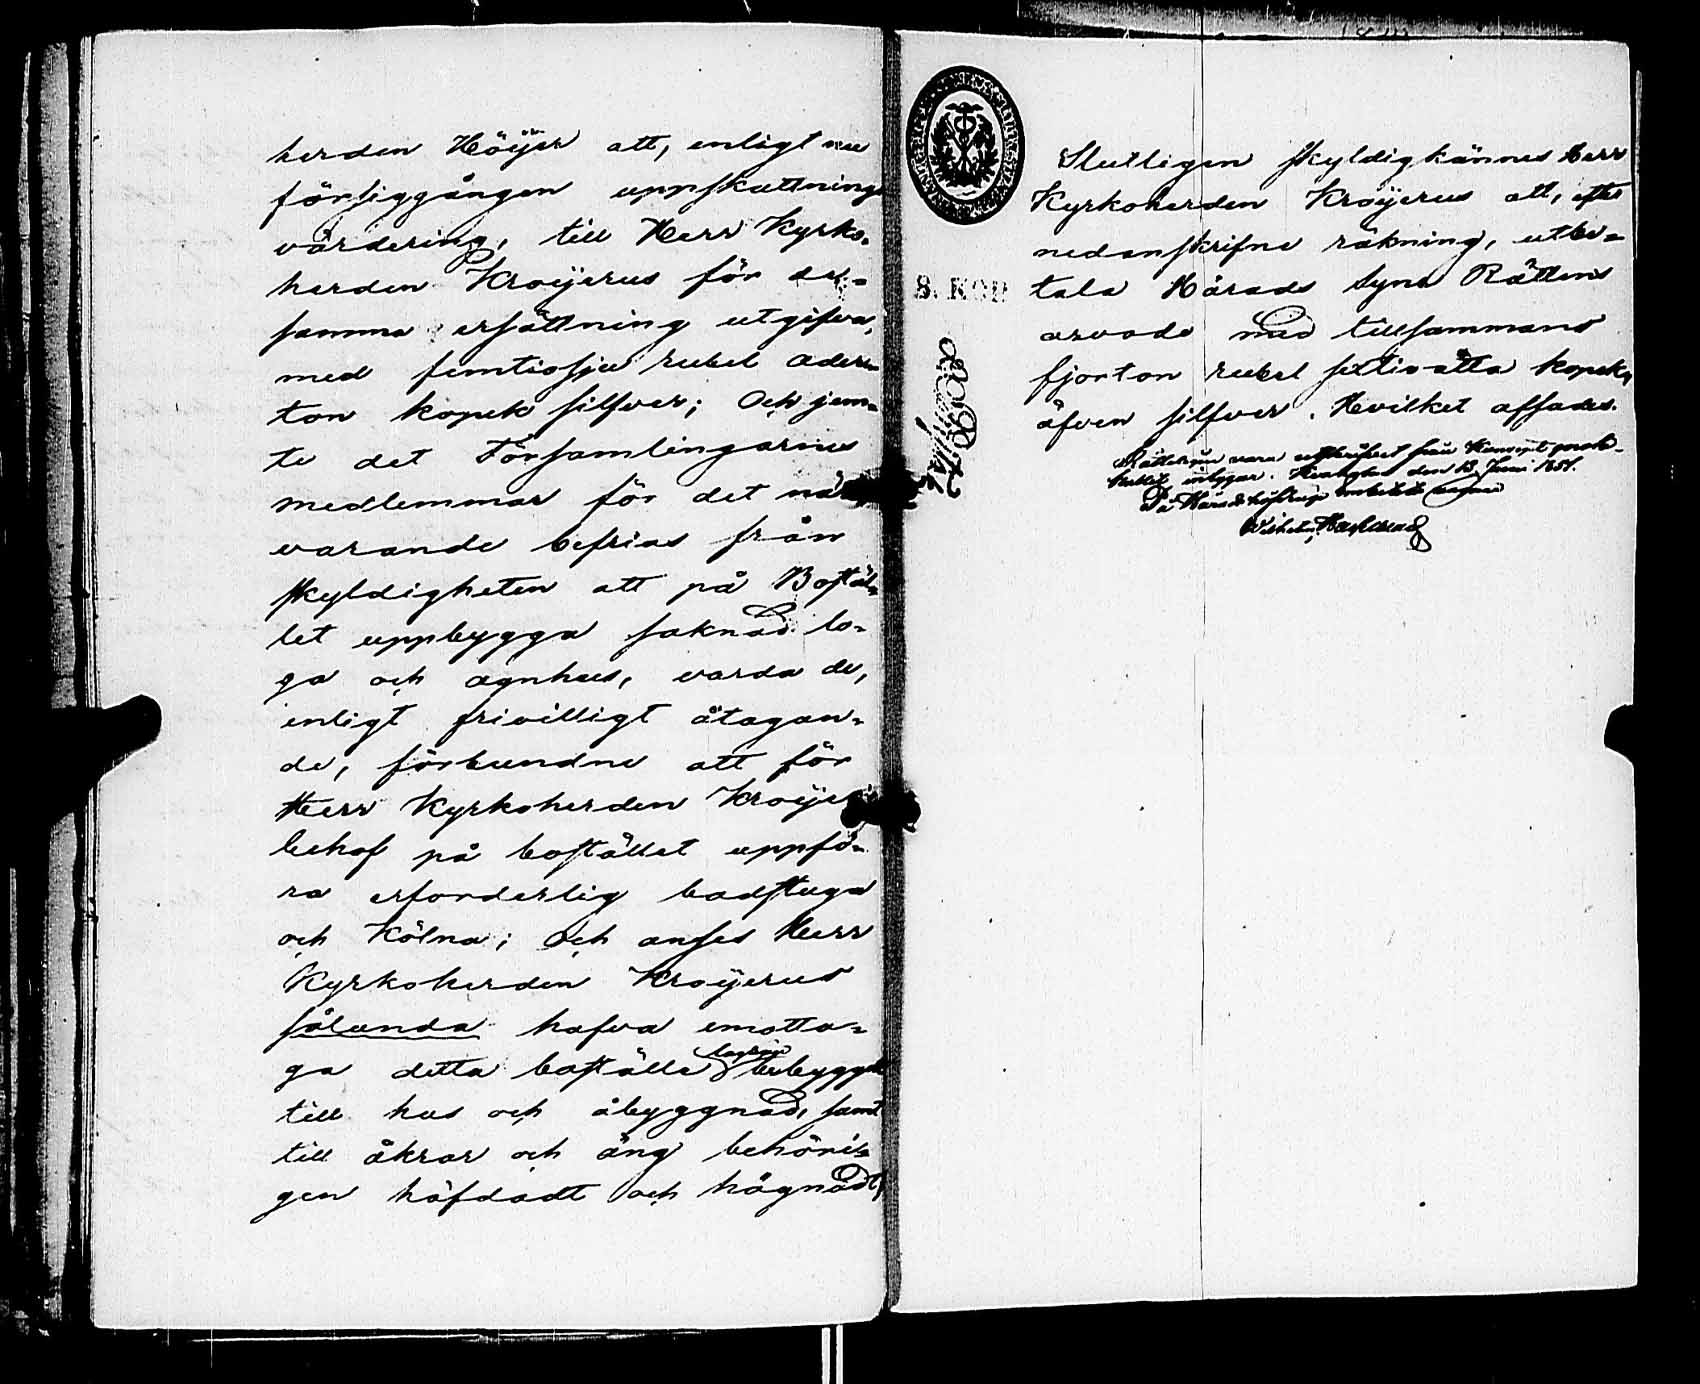 herden Höijer att, enligt nu
försiggången uppskattnings
värdering, till Herr Kyrko-
herden Kroijerus för den-
samma ersättning utgifva,
med femtiosju rubel ader-
ton kopek silfver; Och jem-
te det Församlingarnes
medlemmar för det när
varande befrias från
skyldigheten att på Bostäl-
let uppbygga saknad lo-
ga och agnhus, varda de,
enligt frivilligt åtagan-
de, förbundne att för
Herr Kyrkoherden Kroijeri
behof på bostället uppfö-
ra erforderlig badstuga
och Kölna; Och anses Herr
Kyrkoherden Kroijerus
sålunda hafva emotta-
ga detta boställe laglige bebyggdt
till hus och åbyggnad, samt
till åkrar och äng behöri-
gen häfdadt och hägnadt,
S. KOP
Slutligen skyldigkännes Herr
Kyrkoherden Kroijerus att, efter
nedanskrifne räkning, utbe-
tala Härads Syne Rättens
arvode med tillsammans
fjorton rubel sextio-åtta kopek,
äfven silfver. Hvilket afsades.
vara utskrifvet från Koncept proto-
kollet intygar. den 13 Juni 1851.
På Häradshöfdinge embetets vägnar
Wilhelm